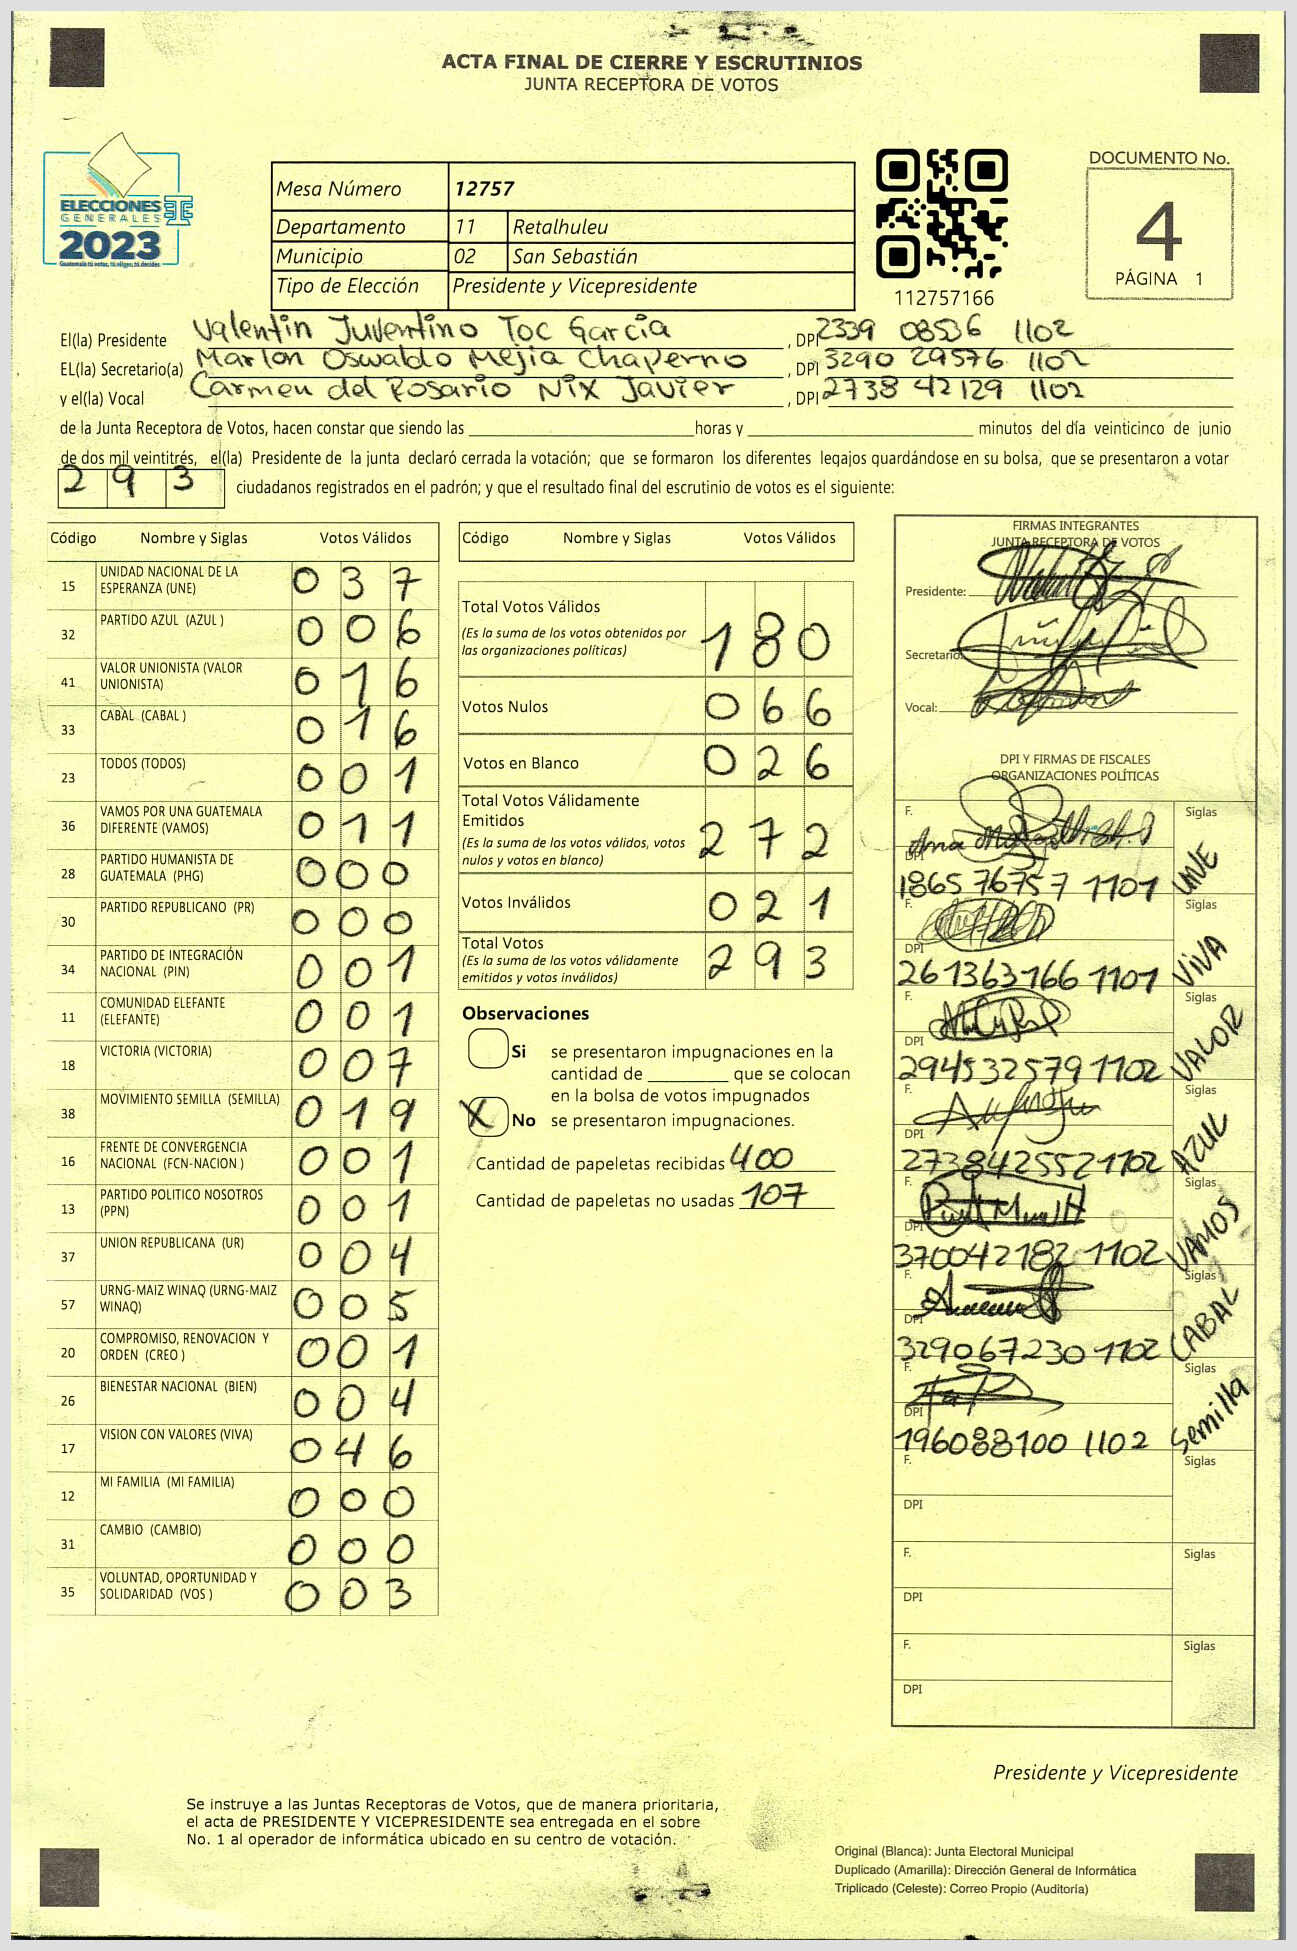 ACTA FINAL DE CIERRE Y ESCRUTINIOS
JUNTA RECEPTORA DE VOTOS
ELECCIONES
GENERALES
2023
Guatemala tú votas, tú eliges, tú decides
Mesa Número 12757
Departamento 11 Retalhuleu
Municipio 02 San Sebastián
Tipo de Elección Presidente y Vicepresidente
112757166
DOCUMENTO No.
4
PÁGINA 1
El(la) Presidente Valentin Juventino Toc García, DPI 2339 08536 1102
EL(la) Secretario(a) Marlon Oswaldo Mejia Chaperno, DPI 3290 29576 1102
y el(la) Vocal Carmen del Rosario Nix Javier, DPI 2738 42129 1102
de la Junta Receptora de Votos, hacen constar que siendo las horas y minutos del día veinticinco de junio
de dos mil veintitrés, el(la) Presidente de la junta declaró cerrada la votación; que se formaron los diferentes legajos guardándose en su bolsa, que se presentaron a votar
293 ciudadanos registrados en el padrón; y que el resultado final del escrutinio de votos es el siguiente:
Código Nombre y Siglas Votos Válidos
15 UNIDAD NACIONAL DE LA ESPERANZA (UNE) 037
32 PARTIDO AZUL (AZUL ) 006
41 VALOR UNIONISTA (VALOR UNIONISTA) 016
33 CABAL (CABAL ) 016
23 TODOS (TODOS) 001
36 VAMOS POR UNA GUATEMALA DIFERENTE (VAMOS) 011
28 PARTIDO HUMANISTA DE GUATEMALA (PHG) 000
30 PARTIDO REPUBLICANO (PR) 000
34 PARTIDO DE INTEGRACIÓN NACIONAL (PIN) 001
11 COMUNIDAD ELEFANTE (ELEFANTE) 001
18 VICTORIA (VICTORIA) 007
38 MOVIMIENTO SEMILLA (SEMILLA) 019
16 FRENTE DE CONVERGENCIA NACIONAL (FCN-NACION ) 001
13 PARTIDO POLITICO NOSOTROS (PPN) 001
37 UNION REPUBLICANA (UR) 004
57 URNG-MAIZ WINAQ (URNG-MAIZ WINAQ) 005
20 COMPROMISO, RENOVACION Y ORDEN (CREO ) 001
26 BIENESTAR NACIONAL (BIEN) 004
17 VISION CON VALORES (VIVA) 046
12 MI FAMILIA (MI FAMILIA) 000
31 CAMBIO (CAMBIO) 000
35 VOLUNTAD, OPORTUNIDAD Y SOLIDARIDAD (VOS ) 003
Código Nombre y Siglas Votos Válidos
Total Votos Válidos
(Es la suma de los votos obtenidos por las organizaciones políticas) 180
Votos Nulos 066
Votos en Blanco 026
Total Votos Válidamente Emitidos
(Es la suma de los votos válidos, votos nulos y votos en blanco) 272
Votos Inválidos 021
Total Votos
(Es la suma de los votos válidamente emitidos y votos inválidos) 293
Observaciones
Si se presentaron impugnaciones en la
cantidad de que se colocan
en la bolsa de votos impugnados
X No se presentaron impugnaciones.
Cantidad de papeletas recibidas 400
Cantidad de papeletas no usadas 107
FIRMAS INTEGRANTES
JUNTA RECEPTORA DE VOTOS
Presidente:
Secretario:
Vocal:
DPI Y FIRMAS DE FISCALES
ORGANIZACIONES POLÍTICAS
F. Siglas
DPI 1865 76757 1101 UNE
F. Siglas
DPI 261363166 1101 VIVA
F. Siglas
DPI 294532579 1102 VALOR
F. Siglas
DPI 273842552 1102 AZUL
F. Siglas
DPI 370042182 1102 VAMOS
F. Siglas
DPI 329067230 1102 CABAL
F. Siglas
DPI 196088100 1102 Semilla
F. Siglas
DPI
F. Siglas
DPI
F. Siglas
DPI
Presidente y Vicepresidente
Se instruye a las Juntas Receptoras de Votos, que de manera prioritaria,
el acta de PRESIDENTE Y VICEPRESIDENTE sea entregada en el sobre
No. 1 al operador de informática ubicado en su centro de votación.
Original (Blanca): Junta Electoral Municipal
Duplicado (Amarilla): Dirección General de Informática
Triplicado (Celeste): Correo Propio (Auditoría)